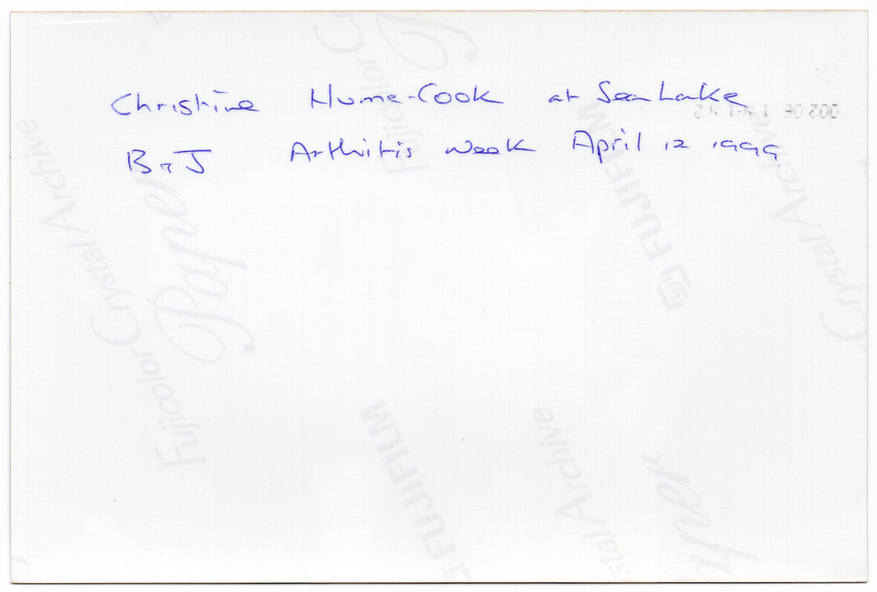 Christine Hume-Cook at Sea Lake
B & J Arthritis Week April 12 1999
Fujicolor Crystal Archive
Paper
FUJIFILM
Fujicolor Cr
FUJIFILM
Crystal Archive
FUJIFILM
stal Archive
per